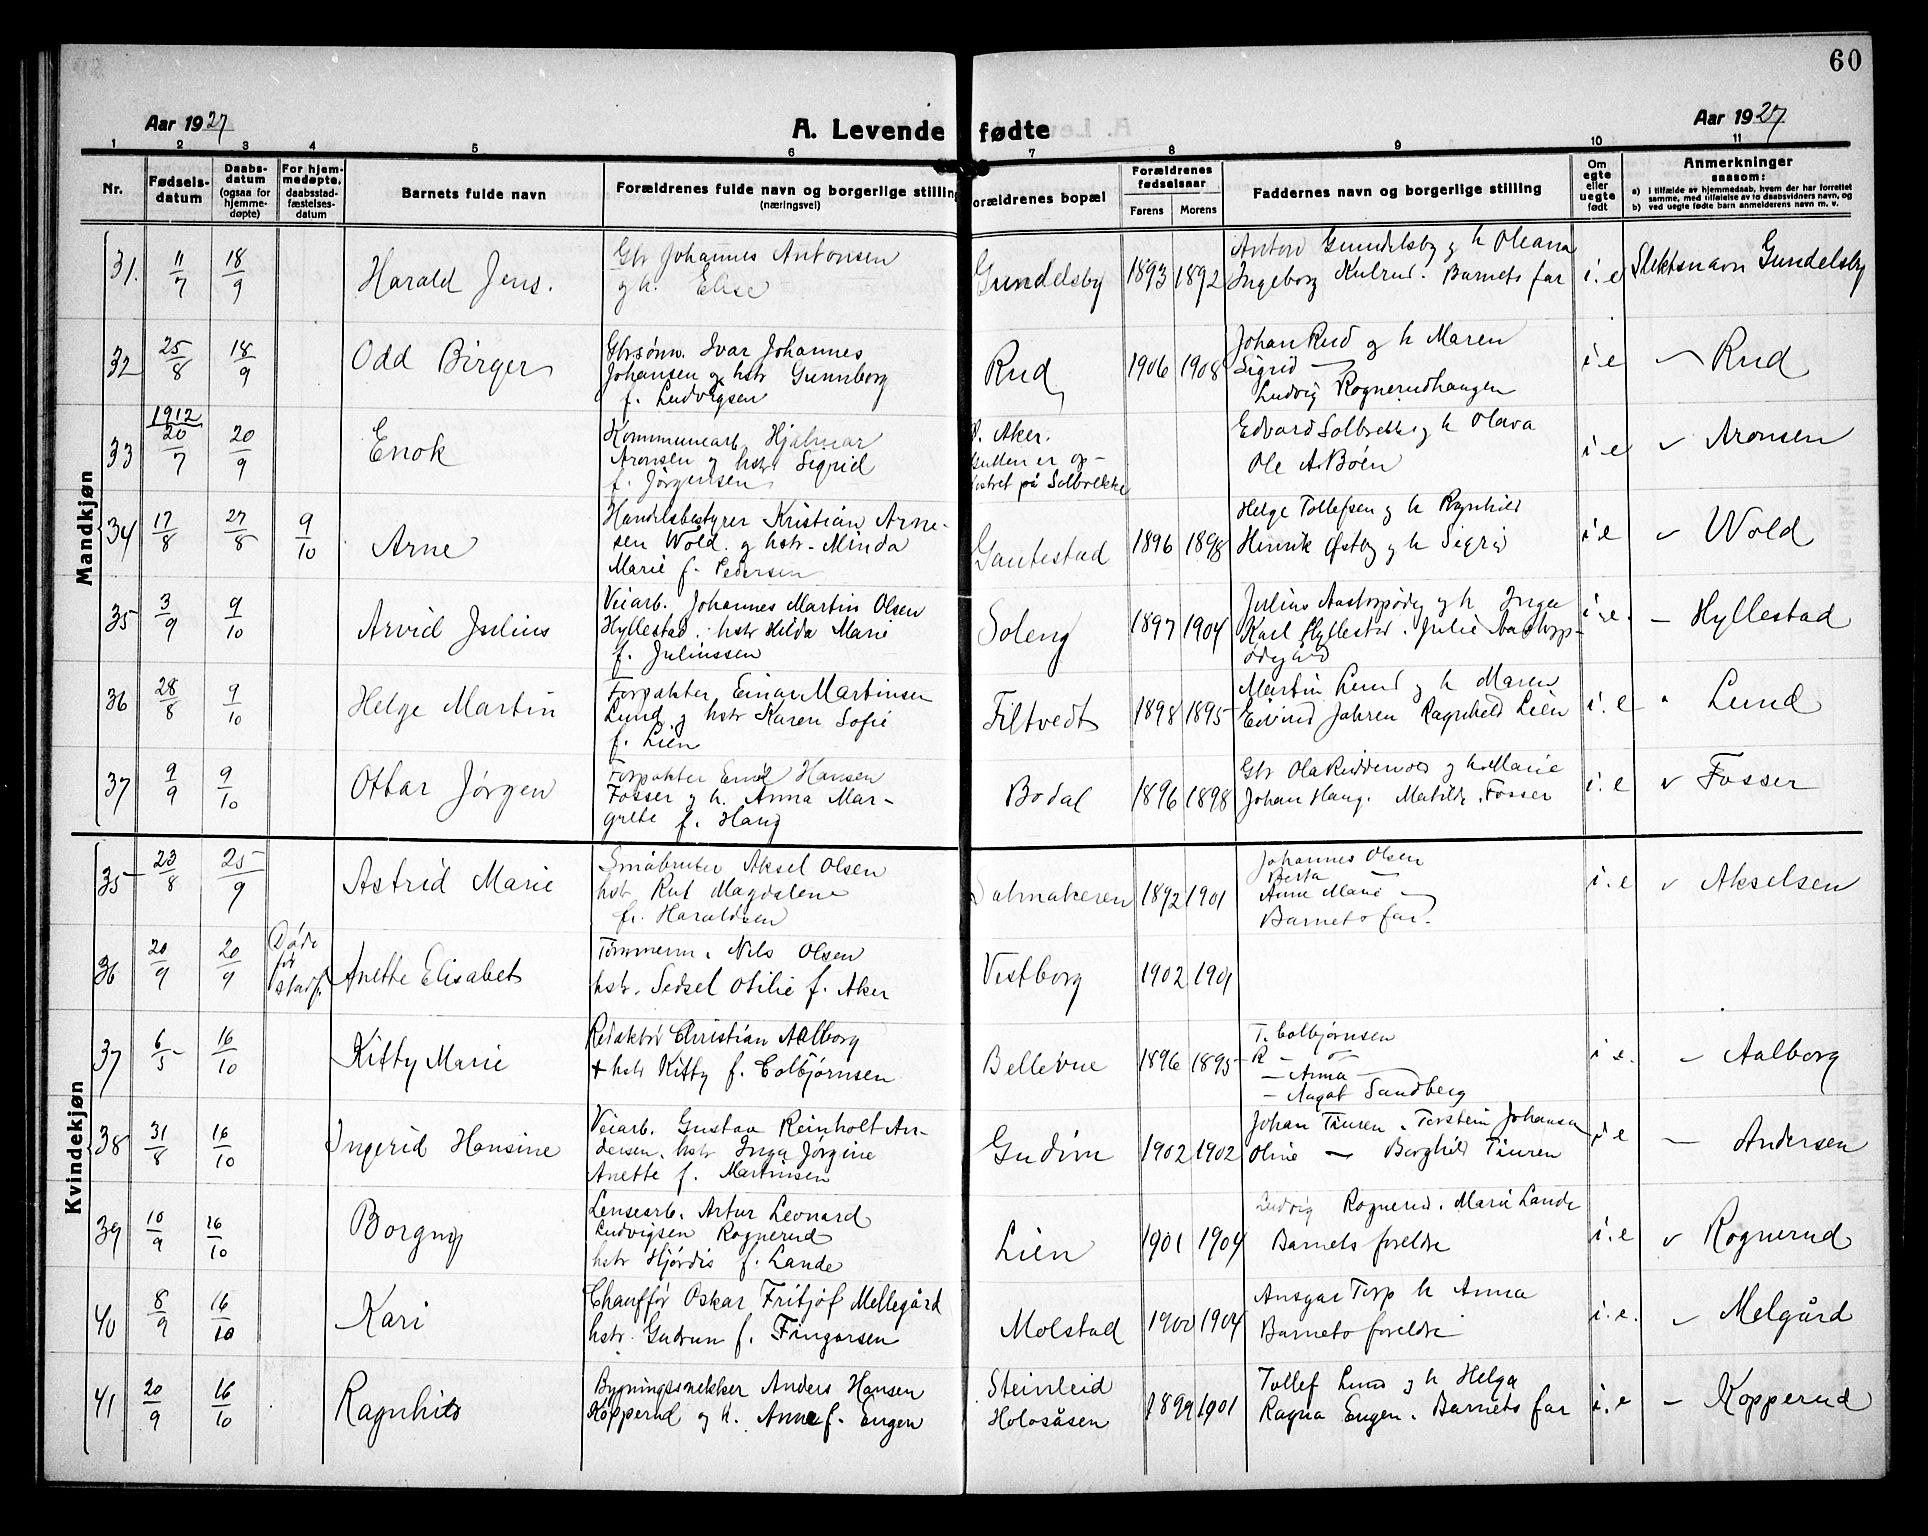 60
Aar 1927
A. Levende fødte
Aar 1927
1 2 3 4 5 6 7 8 9 10 11
Nr.
Fødsels-
datum
Daabs-
datum
(ogsaa for
hjemme-
døpte)
For hjem-
medøpte,
daabsstad-
fæstelses-
datum
Barnets fulde navn
Forældrenes fulde navn og borgerlige stilling
(næringsvei)
Forældrenes bopæl
Forældrenes
fødselsaar
Farens Morens
Faddernes navn og borgerlige stilling
Om
egte
eller
uegte
født
Anmerkninger
saasom:
a) i tilfælde av hjemmedaab, hvem der har forrettet
samme, med tilføielse av to daabsvidners navn, og
b) ved uegte fødte barn anmelderens navn m. v.
Mandkjøn
31. 11/7 18/9 Harald Jens.
Gbr Johannes Antonsen
og h. Elise
Gundelsby 1893 1892
Anton Gundelsby og h Oleana
Ingeborg Kulrud. Barnets far
i. e Slektsnavn Gundelsby
32 25/8 18/9 Odd Birger
Gbrsønn. Ivar Johannes
Johansen og hstr Gunnborg
f. Ludvigsen
Rud 1906 1908
Johan Rud og h Maren
Sigrid —
Ludvig Rognerudhaugen
i e — Rud
33 1912 20/7 20/9 Enok
Kommunearb. Hjalmar
Aronsen og hstr Sigrid
f. Jörgensen
V. Aker.
Gutten er op-
fostret på Solbrekke
Edvard Solbrekke og h Olava
Ole A. Böen
i e Aronsen
34 17/8 27/8 9/10 Arne
Handelsbestyrer Kristian Arne-
sen Wold. og hstr. Minda
Marie f. Pedersen
Gautestad 1896 1898
Helge Tollefsen og h Ragnhild
Henrik Østby og h Sigrid
i e Wold
35 3/9 9/10 Arvid Julius
Veiarb. Johannes Martin Olsen
Hyllestad. hstr Hilda Marie
f. Juliussen
Soleng 1897 1904
Julius Aastorpødeg og h Inga
Karl Hyllestad. Julie Aastorp-
ødegård
i. e. — Hyllestad
36 28/8 9/10 Helge Martin
Forpakter Einar Martinsen
Lund og hstr Karen Sofie
f. Lien
Filtvedt 1898 1895
Martin Lund og h Maren
Eivind Jahren Ragnhild Lien
i. e " Lund
37 9/9 9/10 Ottar Jørgen
Forpakter Emil Hansen
Fosser og h. Anna Mar-
grete f. Haug
Bodal 1896 1898
Gbr Ola Riddernes og h. Marie
Johan Haug. Matilde Fosser
i. e Fosser
Kvindekjøn
35 23/8 25/9 Astrid Marie
Småbruker Aksel Olsen
hstr Rut Magdalene
f. Haraldsen
Dalmakeren 1892 1901
Johannes Olsen
Berta —
Anne Marie —
Barnets far.
i. e Akselsen
36 20/9 20/9 Døde
før
stadf. Anette Elisabet
Tømmerm. Nils Olsen
hstr. Sedsel Otilie f. Aker
Vestborg 1902 1901
37 6/5 16/10 Kitty Marie
Redaktör Christian Aalborg
+ hstr Kitty f. Colbjørnsen
Bellevue 1896 1895
T. Colbjørnsen
R — —
— Anna —
— Aagot Sandberg
i e. — Aalborg
38 31/8 16/10 Ingerid Hansine
Veiarb. Gustav Reinholt An-
dersen. hstr Inga Jørgine
Anette f. Martinsen
Gudim 1902 1902
Johan Tiuren. Torstein Johansen
Oline — Borghild Tiuren
i e — Andersen
39 10/9 16/10 Borgny
Lensearb. Artur Leonard
Ludvigsen Rognerud
hstr Hjördis f. Lande
Lien 1901 1904
Ludvig Rognerud. Marie Lande
Barnets foreldre
i. e Rognerud
40 8/9 16/10 Kari
Chauffør Oskar Fritjof Mellegård
hstr. Gudrun f. Fingarsen
Molstad 1900 1904
Ansgar Torp h Anna
Barnets foreldre
i. e. Melgård
41 20/9 16/10 Ragnhild
Bygningssnekker Anders Hansen
Kopperud og h. Anne f. Engen
Steinleid
Holosåsen 1899 1901
Tollef Lund og h Helga
Ragna Engen. Barnets far
i. e — Kopperud